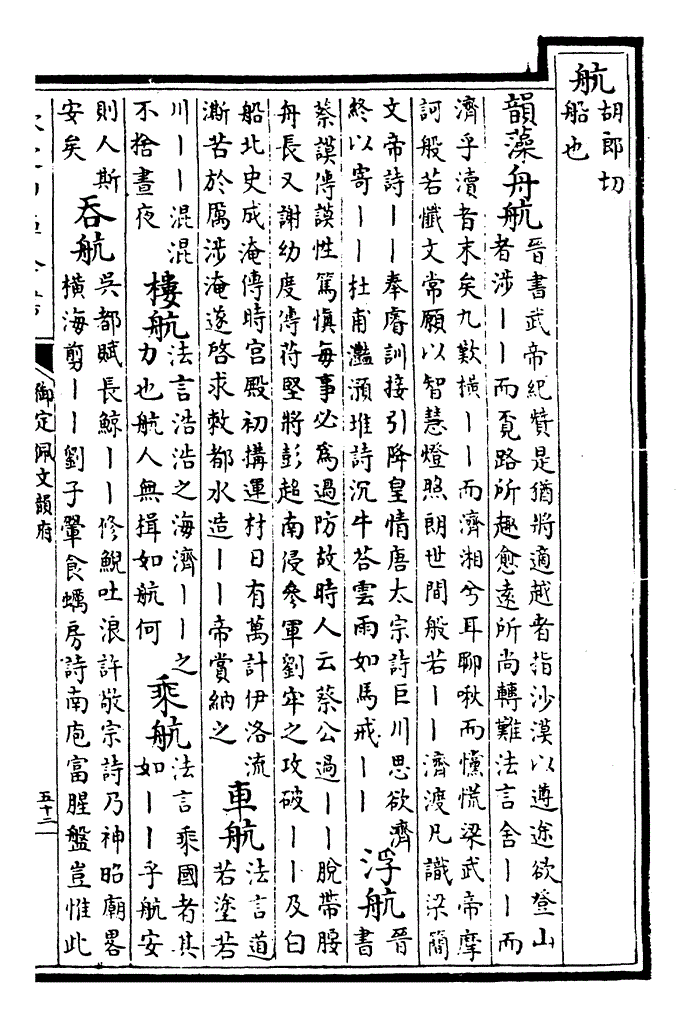 航胡郎切
船也
韻藻舟航晉書武帝紀贊是猶將適越者指沙漠以遵途欲登山
者涉||而覓路所趣愈遠所尚轉難法言舍||而
濟乎瀆者末矣九歎橫||而濟湘兮耳聊啾而戃慌梁武帝摩
訶般若懺文常願以智慧燈照朗世間般若||濟渡凡識梁簡
文帝詩||奉睿訓接引降皇情唐太宗詩巨川思欲濟
終以寄||杜甫灩澦堆詩沉牛荅雲雨如馬戒||
浮航晉
書
蔡謨傳謨性篤慎每事必為過防故時人云蔡公過||脫帶腰
舟長又謝幼度傳苻堅將彭超南侵叅軍劉牢之攻破||及白
船北史成淹傳時宮殿初搆運材日有萬計伊洛流
澌苦於厲涉淹遂啓求敕都水造||帝賞納之
車航法言道
若塗若
川||混混
不捨晝夜
樓航法言浩浩之海濟||之
力也航人無揖如航何
乘航法言乘國者其
如||乎航安
則人斯
安矣
吞航吳都賦長鯨||修鯢吐浪許敬宗詩乃神昭廟畧
橫海剪||劉子翬食蠣房詩南庖富腥盤豈惟此
御定佩文韻府
五十二